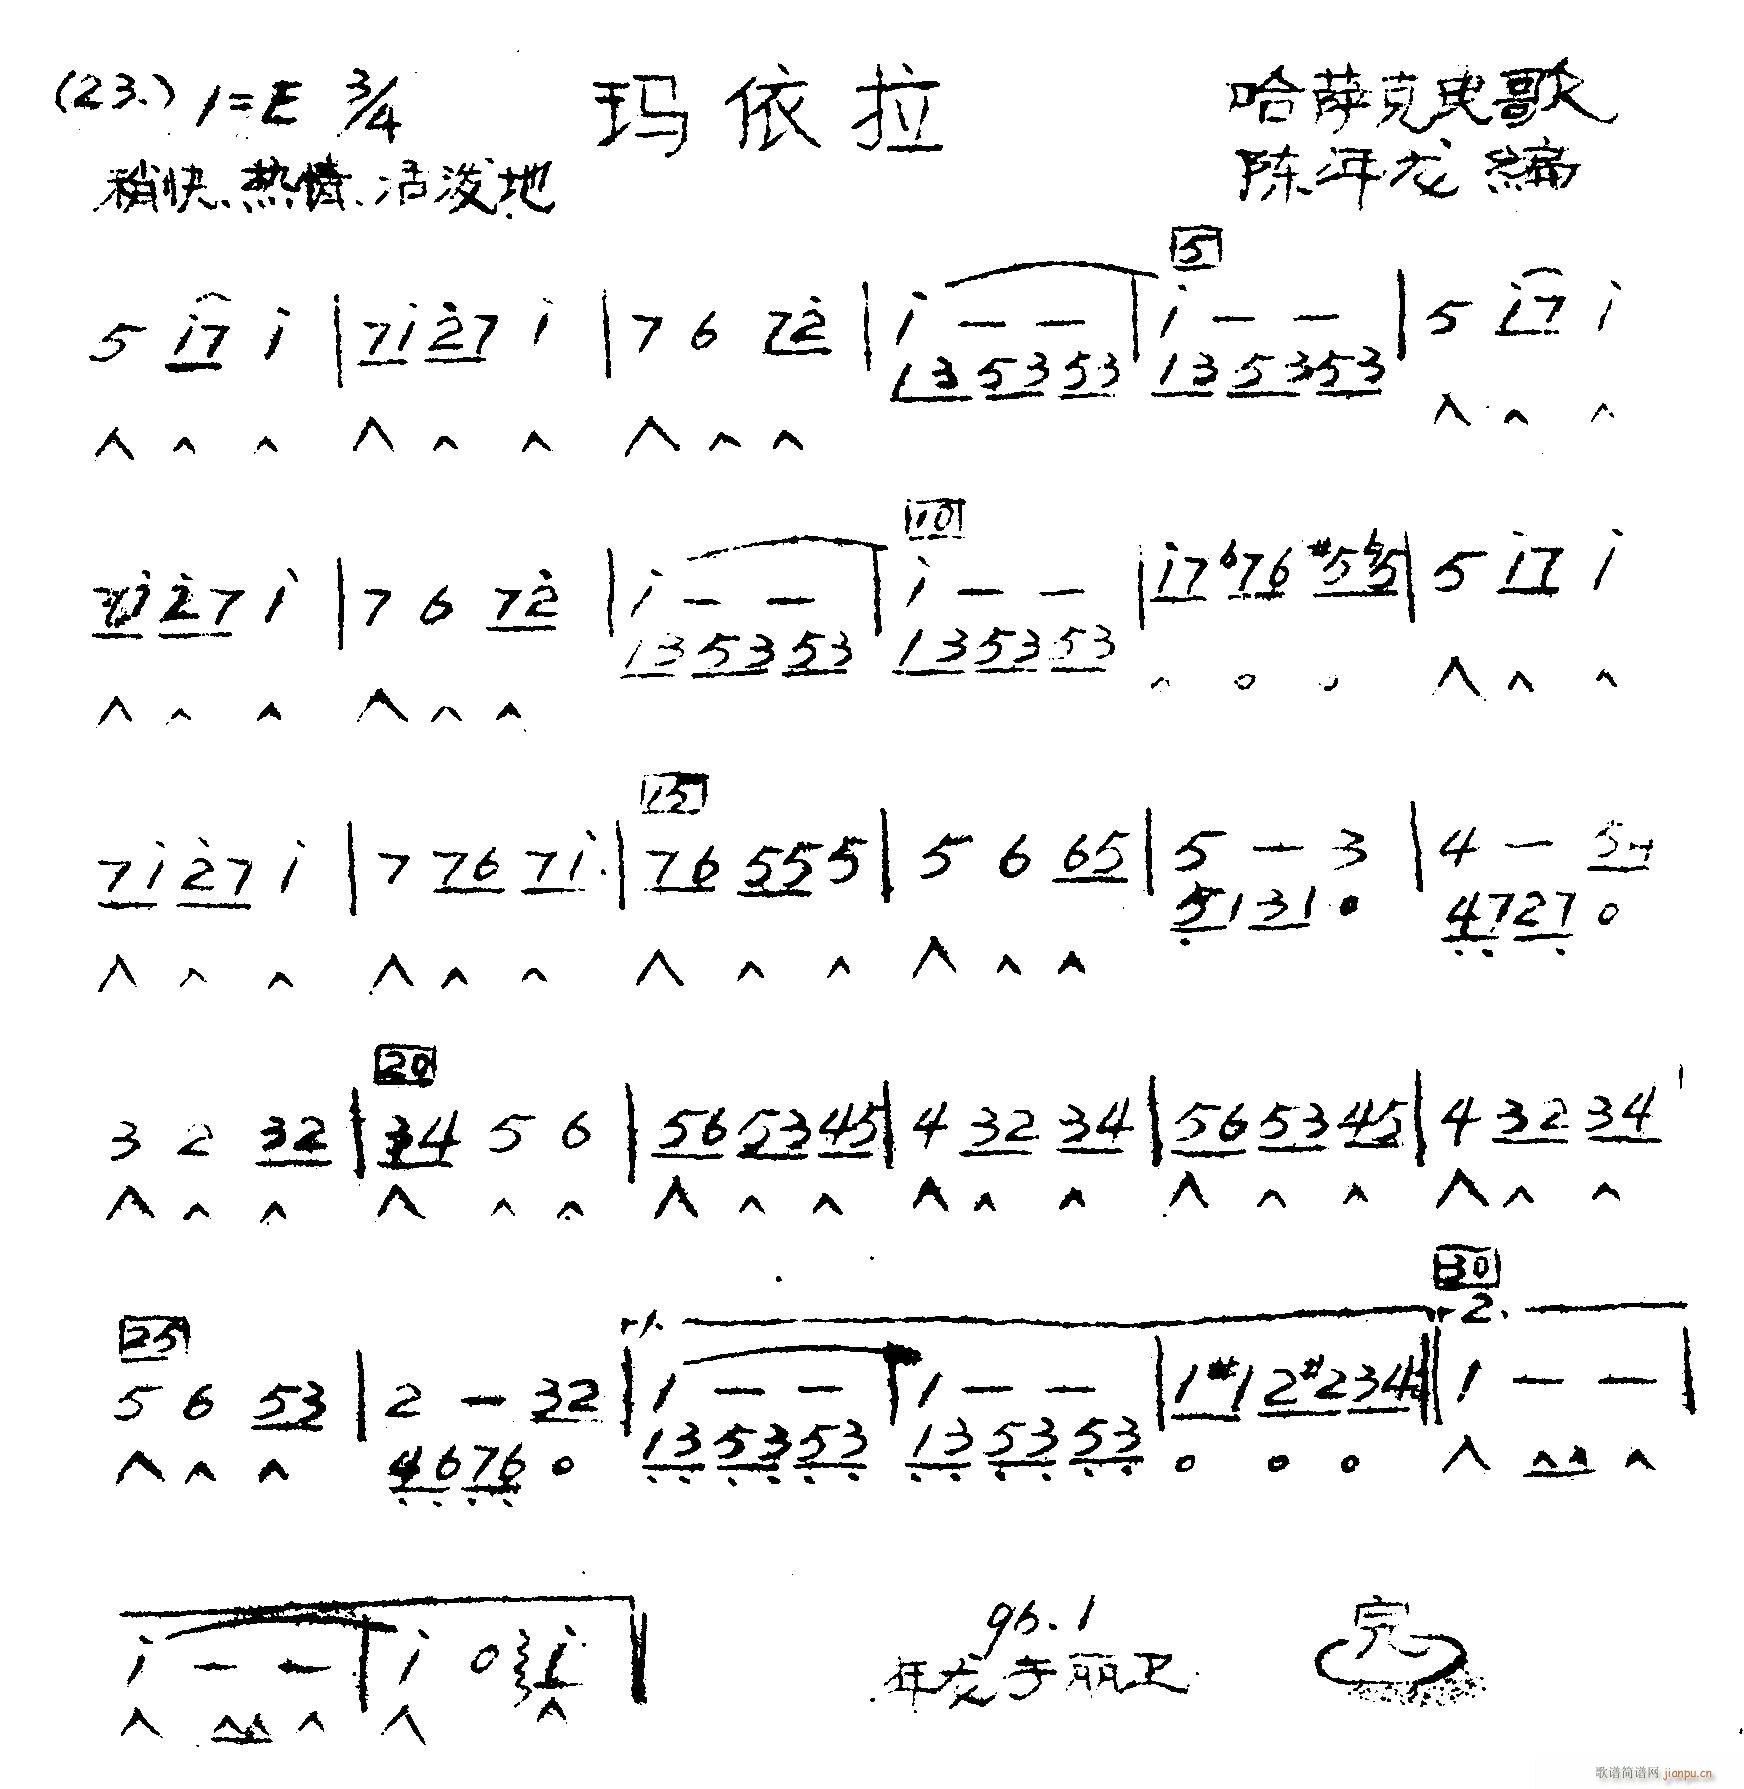 (23.) 1=E 3/4 玛依拉 哈萨克民歌
稍快、热情、活泼地 陈年龙 编
5
5 i7 i | 7i 27 i | 7 6 72 | i — — | i — — | 5 i7 i
13 53 53 13 53 53
^ ^ ^ ^ ^ ^ ^ ^ ^ ^ ^ ^
10
7i 27 i | 7 6 72 | i — — | i — — | i7 b76 #5b5 | 5 i7 i
13 53 53 13 53 53
^ ^ ^ ^ ^ ^ ^ 0 0 ^ ^ ^
15
7i 27 i | 7 76 7i | 76 55 5 | 5 6 65 | 5 — 3 | 4 — 54
51 31 0 47 27 0
^ ^ ^ ^ ^ ^ ^ ^ ^ ^ ^ ^
20
3 2 32 | 34 5 6 | 56 53 45 | 4 32 34 | 56 53 45 | 4 32 34
^ ^ ^ ^ ^ ^ ^ ^ ^ ^ ^ ^ ^ ^ ^ ^ ^ ^
30
25 1. 2.
5 6 53 | 2 — 32 | 1 — — | 1 — — | 1#1 2#2 34 | 1 — —
^ ^ ^ 46 76 0 13 53 53 13 53 53 0 0 0 ^ ^^ ^
i — — | i 0 i
^ ^^ ^ ^ ^
96.1
年龙于丽卫
完
歌谱简谱网 jianpu.cn